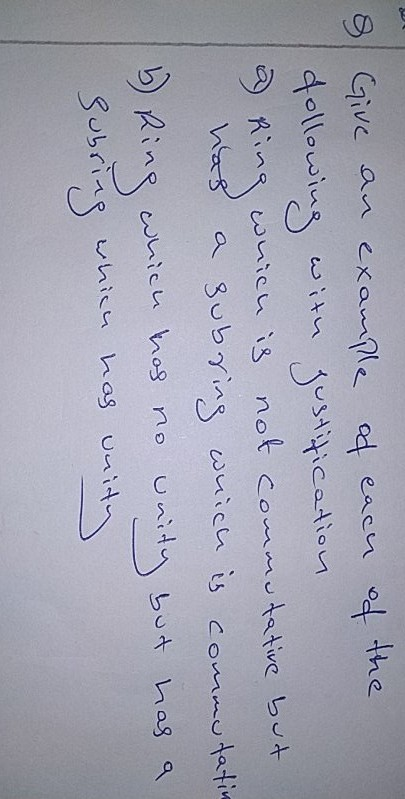 8 Give an example of each of the
following with justification
a) Ring which is not commutative but
has a subring which is commutativ
b) Ring which has no unity but has a
subring which has unity